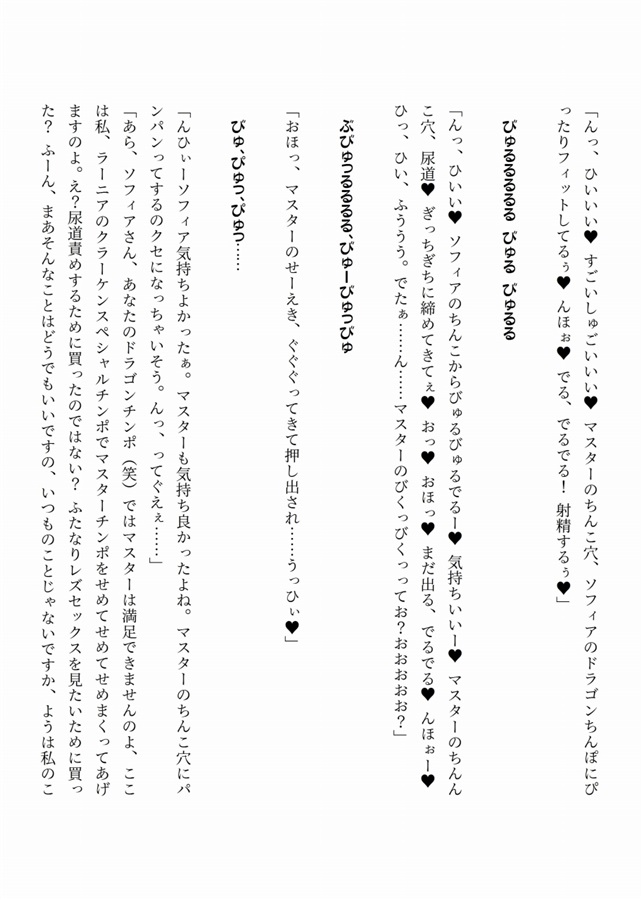 「んっ、ひいいい♥ すごいしゅごいいい♥ マスターのちんこ穴、ソフィアのドラゴンちんぽにぴ
ったりフィットしてるぅ♥ んほぉ♥ でる、でるでる! 射精するぅ♥」
びゅるるるるるる びゅる びゅるる
「んっ、ひいい♥ ソフィアのちんこからびゅるびゅるでるー♥ 気持ちいいー♥ マスターのちんん
こ穴、尿道♥ ぎっちぎちに締めてきてぇ♥ おっ♥ おほっ♥ まだ出る、でるでる♥ んほぉー♥
ひっ、ひい、ふううう。でたぁ……ん……マスターのびくっびくっってお?おおおおお?」
ぶびゅっるるるる、びゅーびゅっびゅ
「おほっ、マスターのせーえき、ぐぐぐってきて押し出され……うっひぃ♥」
びゅ、びゅっ、びゅっ……
「んひぃーソフィア気持ちよかったぁ。マスターも気持ち良かったよね。マスターのちんこ穴にパ
ンパンってするのクセになっちゃいそう。んっ、ってぐえぇ……」
「あら、ソフィアさん、あなたのドラゴンチンポ(笑)ではマスターは満足できませんのよ、ここ
は私、ラーニアのクラーケンスペシャルチンポでマスターチンポをせめてせめてせめまくってあげ
ますのよ。え?尿道責めするために買ったのではない? ふたなりレズセックスを見たいために買っ
た? ふーん、まあそんなことはどうでもいいですの、いつものことじゃないですか、ようは私のこ